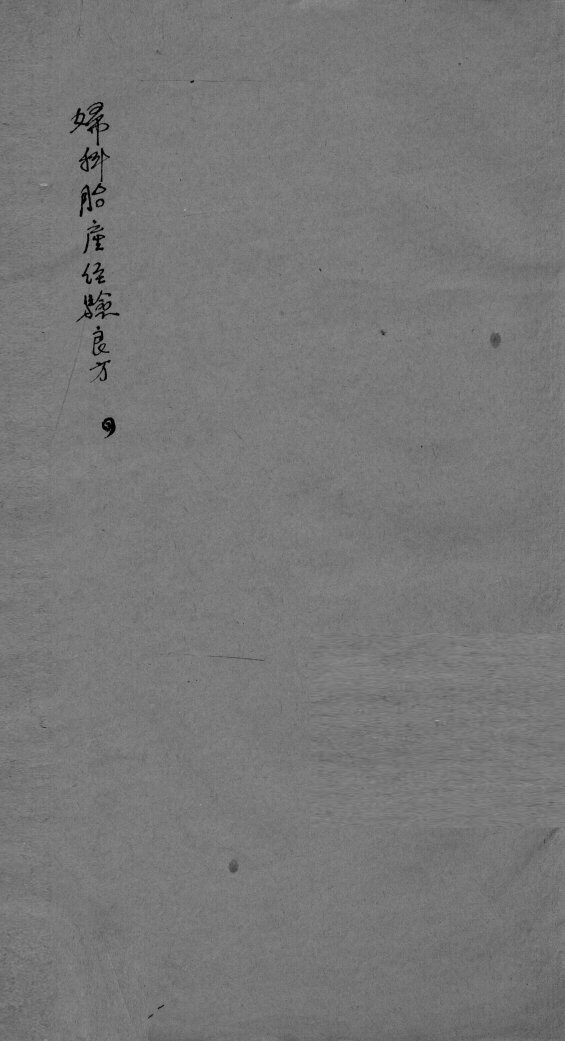 婦科胎產经驗良方